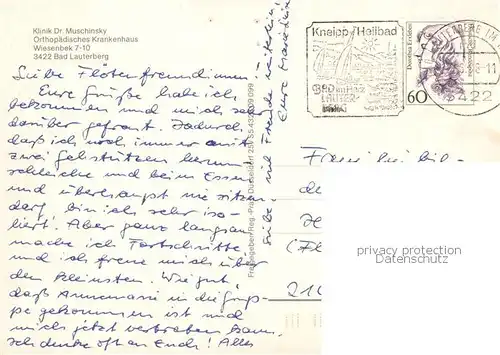 Klinik Dr. Muschinsky
Orthopädisches Krankenhaus
Wiesenbek 7-10
3422 Bad Lauterberg
Liebe Flötenfreundinnen!
Eure Grüße habe ich
bekommen und mich sehr
darüber gefreut. Dadurch,
daß ich noch immer mit
zwei Gehstützen herum-
schleiche und beim Essen
und überhaupt nie sitzen
darf, bin ich sehr iso-
liert. Aber ganz langsam
mache ich Fortschritte
und ich freue mich über
den kleinsten. Wie gut,
daß Annemarie in die Grup-
pe gekommen ist und
mich jetzt vertreten kann.
Ich denke oft an Euch! Alles
Gute und Freude weiterhin!
Eure
Freigegeben Reg.-Präs. Düsseldorf
Kneipp Heilbad
BAD IM HARZ
LAUTER-
BERG
Dorothea Erxleben
60
LAUTERBERG IM
-11
3422
21
privacy protection
Datenschutz